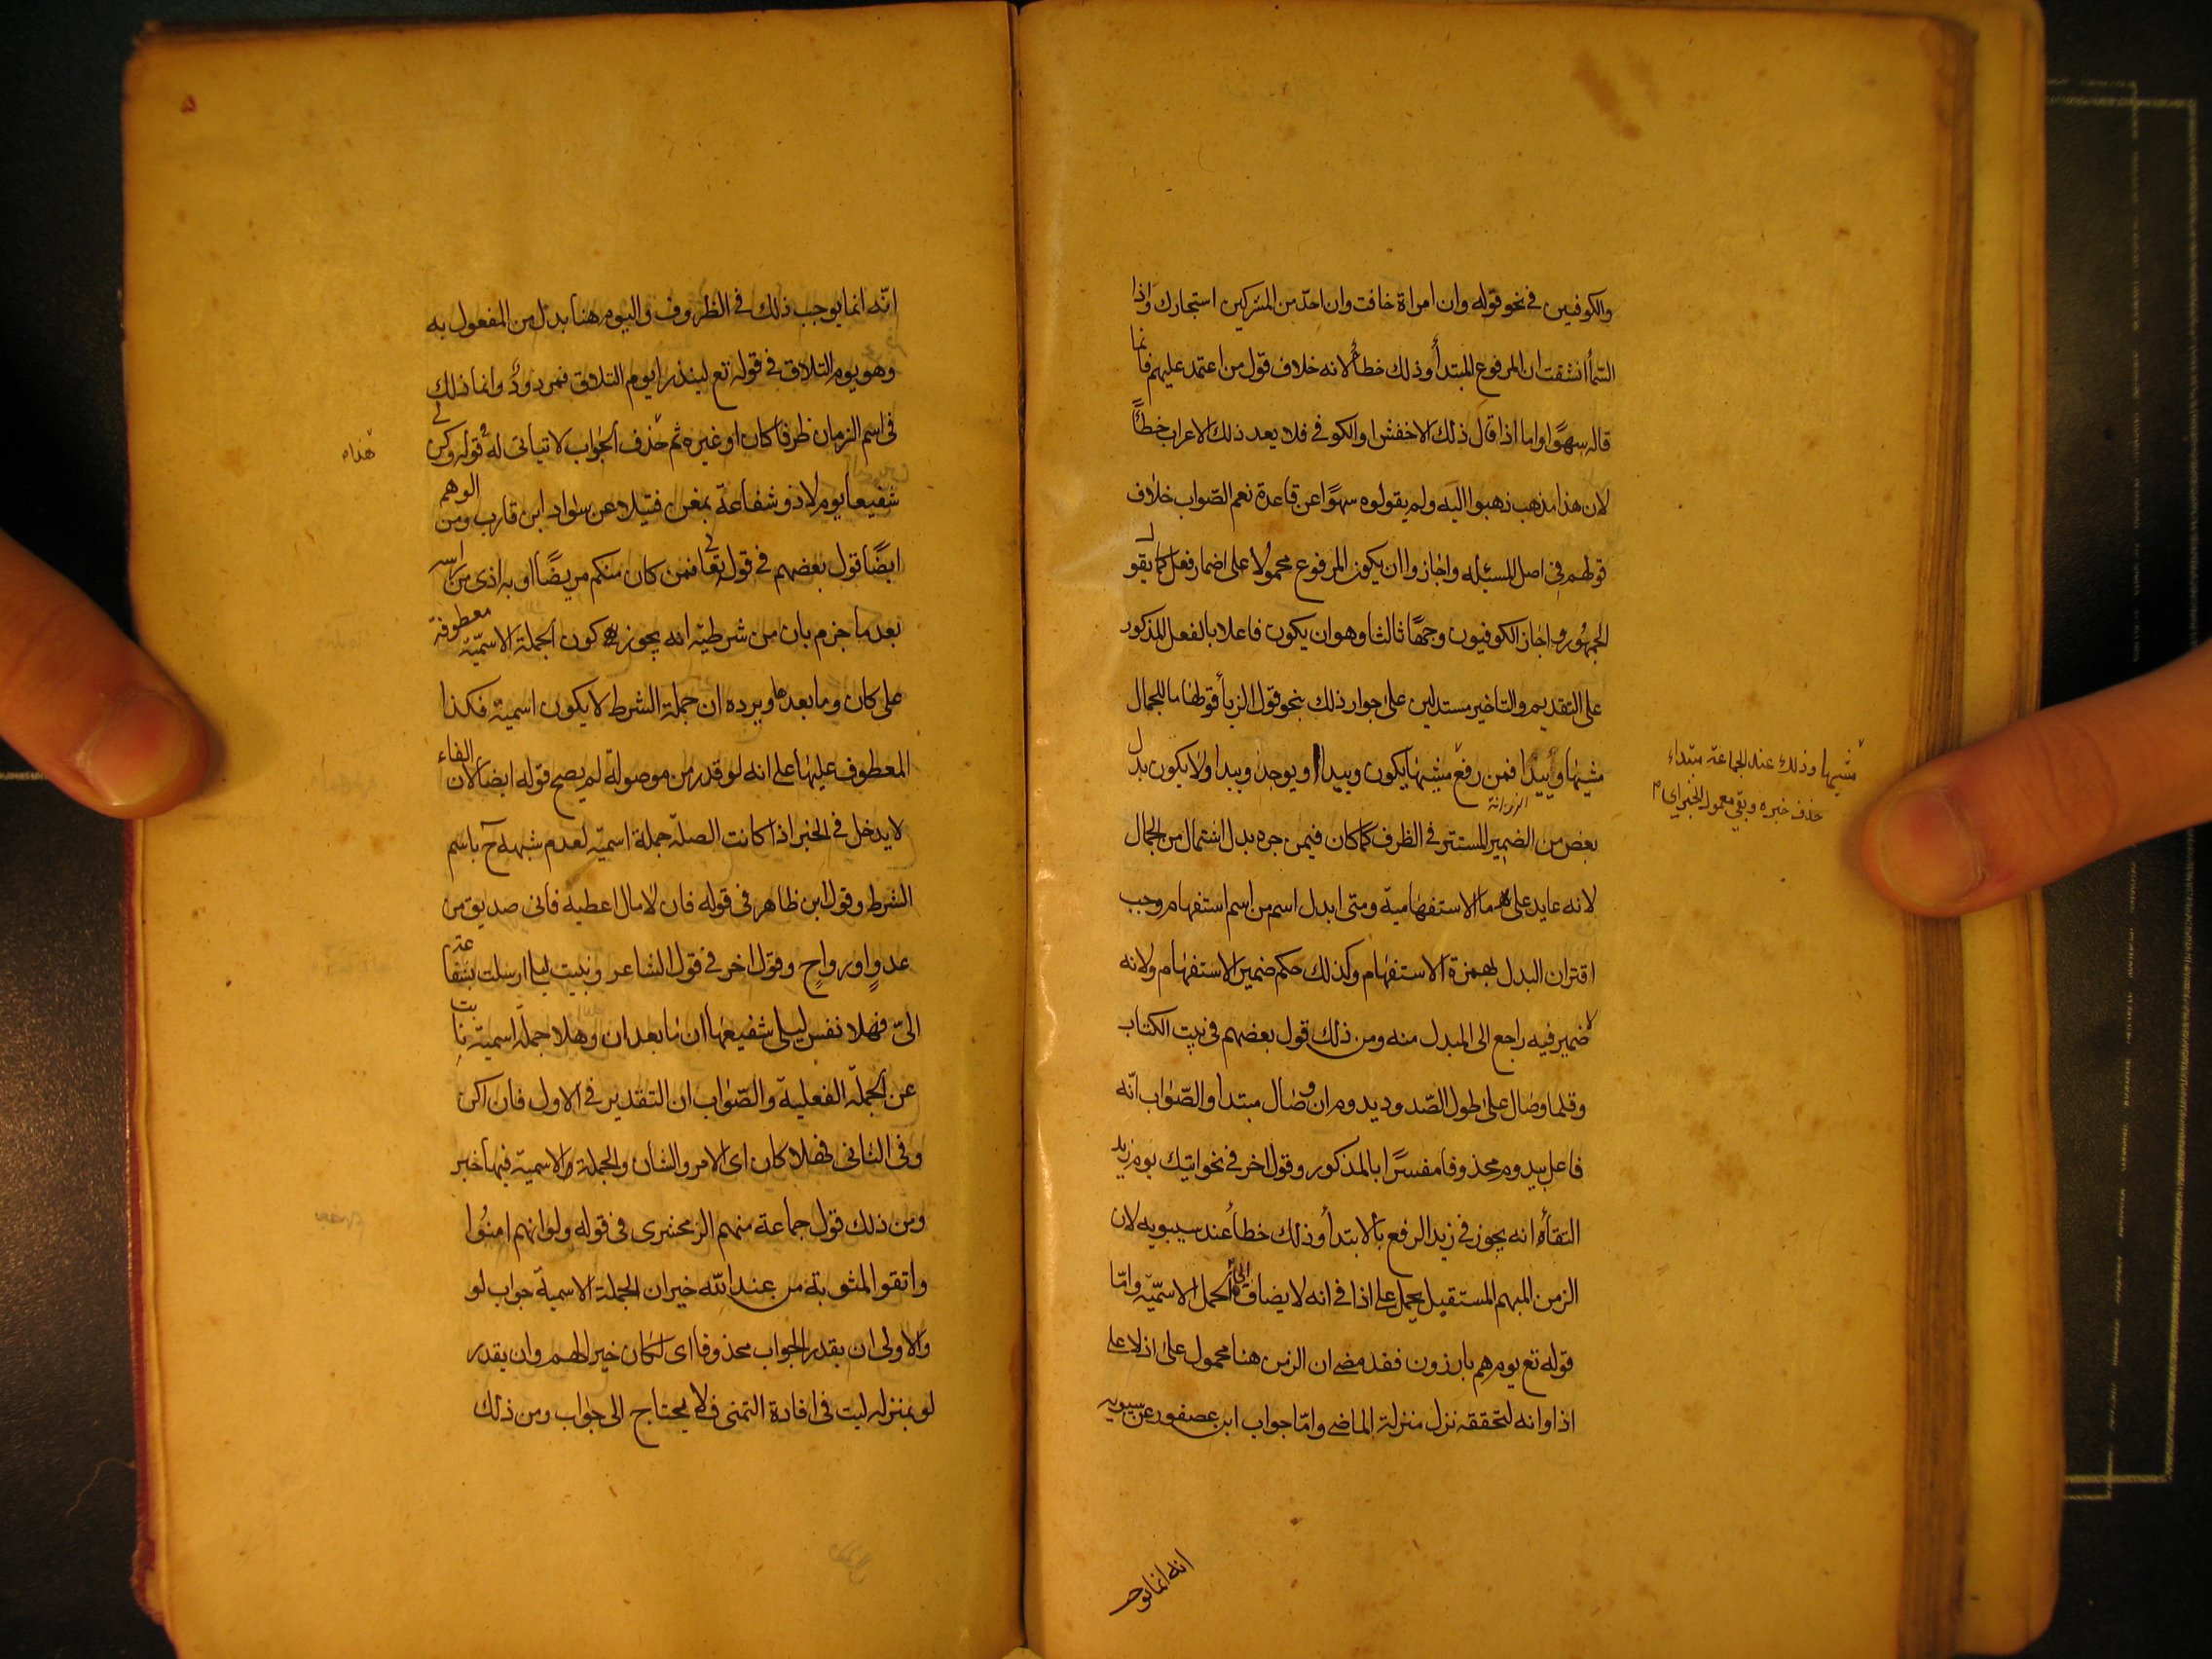 والكوفيين في نحو قوله وان امراة خافت وان احد من المشركين استجارك واذا
السمأ انشقت ان المرفوع المبتدأ وذلك خطأ لانه خلاف قول من اعتمد عليهم فانما
قاله سهوًا واما اذا قال ذلك الاخفش او الكوفي فلا يعد ذلك الاعراب خطأً
لان هذا مذهب ذهبوا اليه ولم يقولوه سهوًا عن قاعدة نعم الصّواب خلاف
قولهم في اصل المسئله واجازوا ان يكون المرفوع محمولا على اضمار فعل كما يقول
الجمهُور واجاز الكوفيون وجهًا ثالثا وهو ان يكون فاعلا بالفعل المذكور
على التقديم والتاخير مستدلين على جواز ذلك بنحو قول الزبأ قولها ما للجمال
مشيها وئيدًا فمن رفع مشيها يكون وئيدا او يوجد وئيدا ولا يكون بدل
بعض من الضمير المستتر في الظرف كما كان فيمن جره بدل اشتمال من الجمال
لانه عايد على ما الاستفهامية ومتى ابدل اسم من اسم استفهام وجب
اقتران البدل بهمزة الاستفهام وكذلك حكم ضمير الاستفهام ولانه
لا ضمير فيه راجع الى المبدل منه ومن ذلك قول بعضهم في بيت الكتاب
وقلما وصال على طول الصّدود يدوم ان وصال مبتدا والصّواب انّه
فاعل بيدوم محذوفا مفسرًا بالمذكور وقول اخر في نحو اتيك يوم زيد
التقأه انه يجوز في زيد الرفع بالابتدأ وذلك خطأ عند سيبويه لان
الزمن المبهم المستقبل يحمل على اذا في انه لا يضاف الى الجمل الاسميّة وامّا
قوله تع يوم هم بارزون فقد مضى ان الزمن هنا محمول على اذ لا على
اذا وانه لتحققه نزل منزلة الماضي وامّا جواب ابن عصفور عن سيبويه
مشيها وذلك عند الجماعة مبتداء
حذف خبره وبقي معمول الخبر اي
انه انما يوجـ
۵
انّه انما يوجب ذلك في الظروف واليوم هنا بدل من المفعول به
وهو يوم التلاق في قوله تع لينذر يوم التلاق فمردودٌ وانما ذلك
في اسم الزمان ظرفا كان او غيره ثم حذف الجواب لا تياتى له قوله وكن لي
شفيعا يوم لا ذو شفاعة بمغن فتيلا عن سواد ابن قارب ومن الوهم
ايضًا قول بعضهم في قوله تعالى فمن كان منكم مريضًا او به اذى من راسه
بعد ما جزم بان من شرطيّة انه يجوز كون الجملة الاسميّة معطوفة
على كان وما بعدها ويرده ان جملة الشرط لا يكون اسمية فكذا
المعطوف عليها على انه لو قدر من موصولة لم يصح قوله ايضا لان الفاء
لا يدخل في الخبر اذا كانت الصلة جملة اسميّة لعدم شبهه ح باسم
الشرط وقول ابن ظاهر في قوله فان لا مال اعطيه فانى صديق من
عدوٍ او رواحٍ وقول اخر في قول الشاعر ونبيت ليلى ارسلت بشفاعة
الىّ فهلا نفس ليلى شفيعها ان ما بعد ان وهلا جملة اسمية نابت
عن الجملة الفعلية والصّواب ان التقدير في الاول فان اكن
وفي الثاني فهلا كان اى الامر والشان والجملة الاسمية فيها خبر
ومن ذلك قول جماعة منهم الزمخشرى في قوله ولو انهم امنُوا
واتقوا لمثوبة من عند الله خير ان الجملة الاسمية جواب لو
والاولى ان يقدر الجواب محذوفا اى لكان خيرا لهم وان يقدر
لو بمنزله ليت في افادة التمنى فلا يحتاج الى جواب ومن ذلك